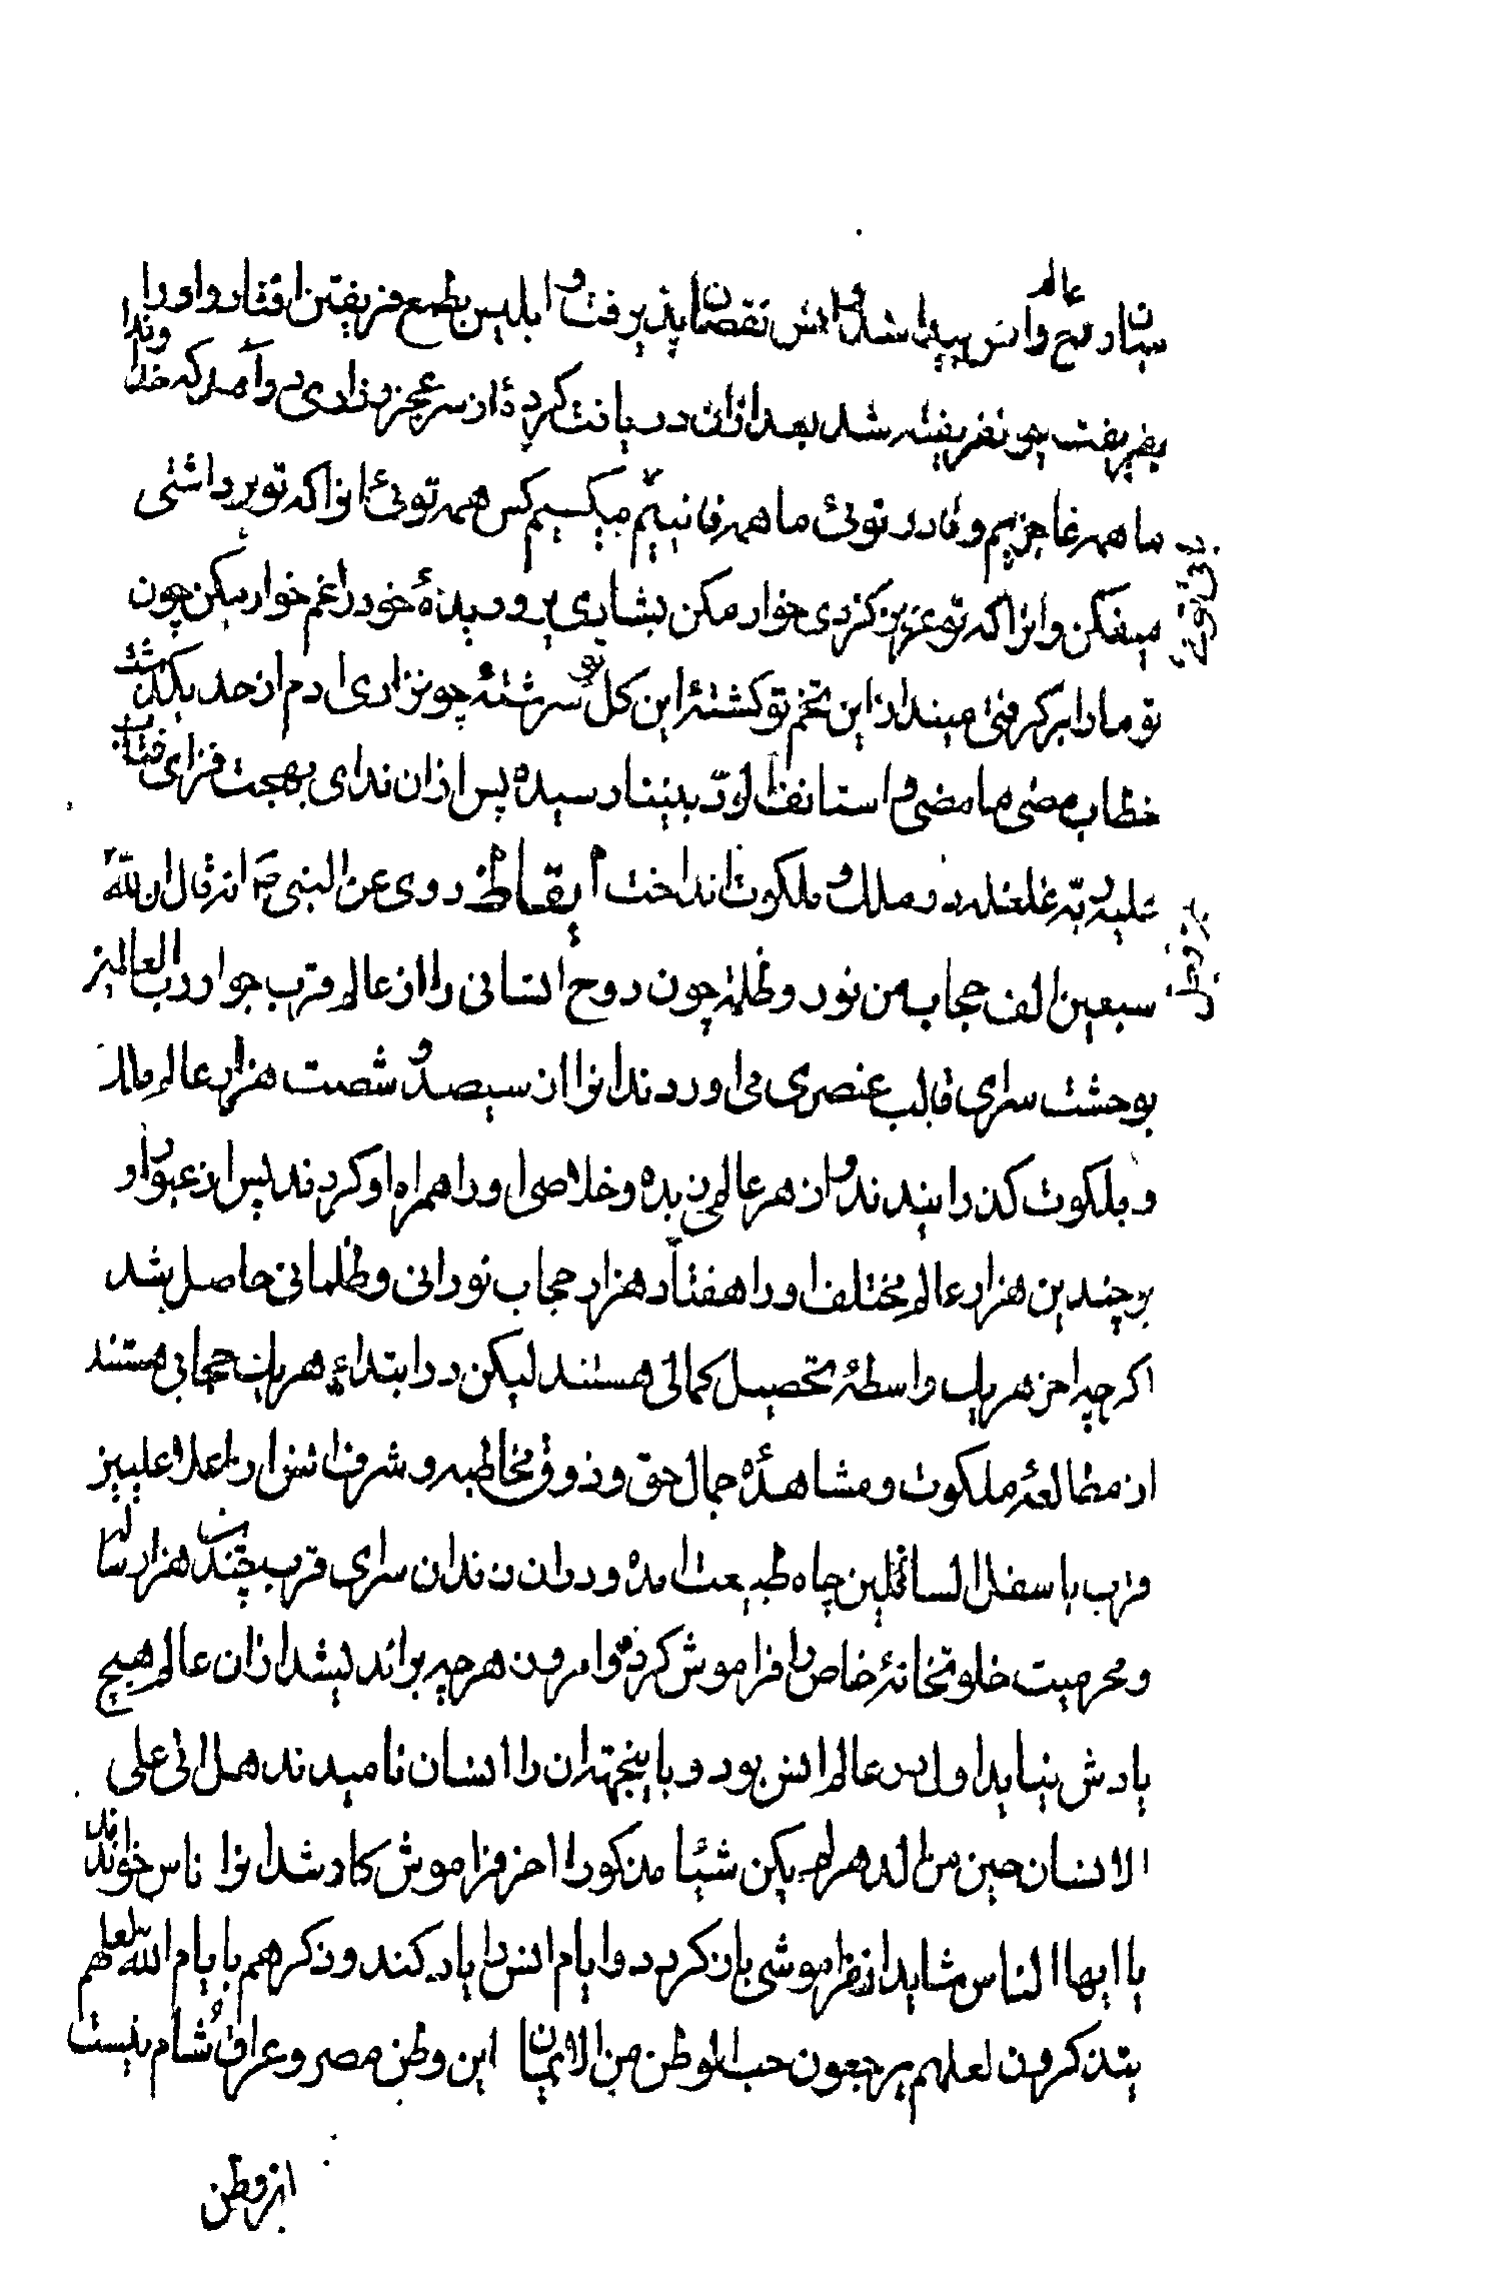 عالم
میان روح وانس پیدا شد و انس نقصان پذیرفت و ابلیس بطمع فریفتن افتاد و او را
بفریفت چو نفریفته شد بعد ازان دریافت کرده از سر عجز بزاری در آمد که خداوندا
ما همه عاجزیم و قادر توئی ما همه فانییم میکسیم کس همه توئی انرا که تو برداشتی
میفکن وانرا که تو عزیز کردی خوار مکن بشادی پروریدهٔ خود را غم خوار مکن چون
تو ما را بر گرفتی میندازاین تخم تو کشتهٔ این کل تو سرشتهٔ چو نزاری ادم از حد بگذشت
خطاب مضی ما مضی و استانف الود بیننا رسیده پس ازان ندای بهجت فزای فتاب
علیه ربه غلغله در ملک و ملکوت انداخت ایقاظ روی عن النبی ص انه قال ان لله
سبعین الف حجاب من نور وظلمة چون روح انسانی را از عالم قرب جوار رب العالمین
بوحشت سرای قالب عنصری می اوردند انرا از سیصد و شصت هزار عالم ملک
و ملکوت کذرانیدند و از هر عالمی زبده و خلاصی او را همراه او کردند پس از عبور او
بر چندین هزار عالم مختلف او را هفتاد هزار حجاب نورانی و ظلمانی حاصل بشد
اکر چه اخر هریک واسطهٔ تحصیل کمالی هستند لیکن در ابتداء هریک حجابی هستند
از مطالعهٔ ملکوت و مشاهدهٔ جمال حق و ذوق مخاطبه و شرف انس از اعلا علیین
قرب با سفل السافلین چاه طبیعت امده و دران زندان سرای قرب چندین هزار ساله
و محرمیت خلوتخانهٔ خاص را فراموش کرده و امروز هر چه براندیشد ازان عالم هیچ
یادش نیاید اول در عالم انس بود و باینجهة ان را انسان نامیدند هل اتی علی
الانسان حین من الدهر لم یکن شیئا مذکورا اخر فراموش کار شد انرا ناس خواندند
یا ایها الناس شاید از فراموشی باز کردد و ایام انس را یاد کند و ذکرهم بایام الله لعلهم
یتذکرون لعلهم یرجعون حب الوطن من الایمان این وطن مصر و عراق و شام نیست
این وطن